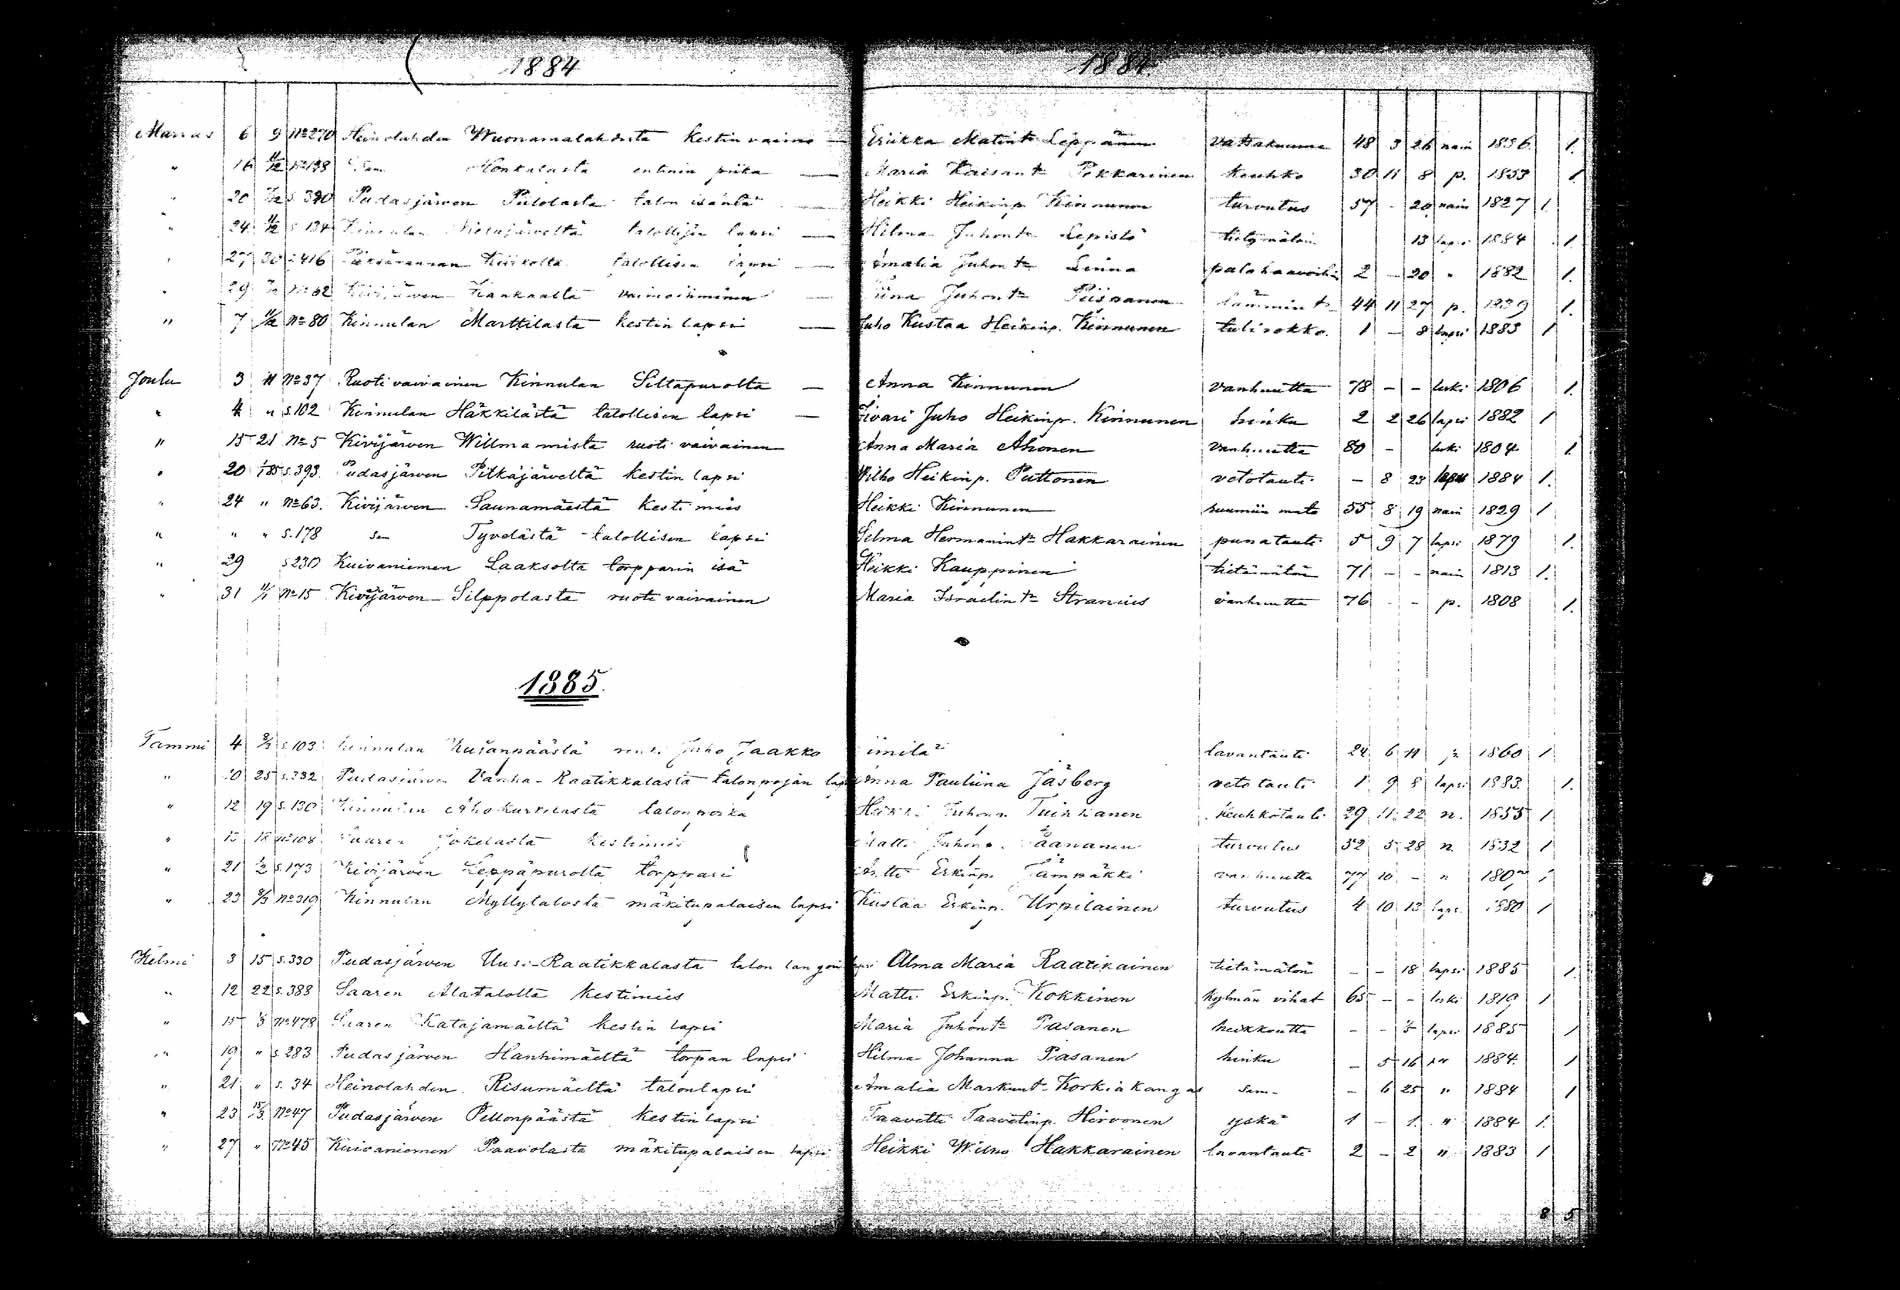 1884 1884
Marras 6 9 No 270 Heinolahden Wuonamalahdesta kestin vaimo — Eriikka Matint. Leppänen vatsakuume 48 3 26 nain 1836 1.
" 16 11/12 No 198 Sam Honkalasta entinen piika — Maria Kaisant. Pekkarinen keuhko 30 11 8 p. 1853 1
" 20 s. 390 Pudasjärven Pulolasta talon isäntä — Heikki Heikinp. Kinnunen turvotus 57 - 20 nain 1827 1.
" 24 s. 134 Kinnulan talollisen lapsi — Hilma Juhont. Lepistö tietymätön 13 lapsi 1884 1.
" 27 30 s. 416 talollisen lapsi — Amalia Juhont. Linna palohaavoihin 2 - 20 " 1882 1.
" 29 No 62 Kivijärven Kankaalta vaimoihminen — Tiina Juhont. Piispanen 44 11 27 p. 1839 1.
" 7 11/12 No 80 Kinnulan Marttilasta kestin lapsi — Juho Kustaa Heikinp. Kinnunen tulirokko 1 - 8 lapsi 1883 1
Joulu 3 11 No 37 Ruotivaivainen Kinnulan Siltapurolta — Anna Kinnunen vanhuutta 78 - - leski 1806 1.
" 4 " s. 102 Kinnulan Häkkilästä talollisen lapsi — Iivari Juho Heikinp. Kinnunen hinku 2 2 26 lapsi 1882 1
" 15 21 No 5 Kivijärven Willmamista ruoti vaivainen Anna Maria Ahonen vanhuutta 80 - leski 1804 1
" 20 1/85 s. 393 Pudasjärven Pitkäjärveltä kestin lapsi Wilho Heikinp. Puttonen vetotauti - 8 23 lapsi 1884 1.
" 24 " No 63. Kivijärven Saunamäestä kestimies Heikki Kinnunen ruumiin mato 55 8 19 nain 1829 1
" " " s. 178 sen Tyvelästä talollisen lapsi Selma Hermanint. Hakkarainen punatauti 5 9 7 lapsi 1879 1.
" 29 s 230 Kuivaniemen Laaksolta torpparin isä Heikki Kauppinen tietämätön 71 - - nain 1813 1.
" 31 11/1 No 15 Kivijärven Silppolasta ruoti vaivainen Maria Israelint. Stranius vanhuutta 76 - - p. 1808 1.
1885.
Tammi 4 s. 103 Kinnulan Juho Jaakko lavantauti 24 6 11 1860 1
" 10 25 s. 332 Pudasjärven Vanha-Raatikkalasta talonpojan lapsi Anna Pauliina Jäsberg vetotauti 1 9 8 lapsi 1883. 1.
" 12 19 s. 130 Kinnulan talonpoika Heikki Juhonp. Tuikkanen keuhkotauti 29 11 22 n. 1855 1
" 13 18 No 108 Saaren Jokelasta kestimies Matti Juhonp. Paananen turvotus 52 5 28 n. 1832 1
" 21 1/2 s. 173 Kivijärven Leppäpurolta torppari Antti Erkinp. Jämpäkki vanhuutta 77 10 - " 1
" 23 No 319 Kinnulan Myllytalosta mäkitupalaisen lapsi Kustaa Erkinp. Urpilainen turvotus 4 10 13 laps. 1880 1
Helmi 3 15 s. 330 Pudasjärven Uusi-Raatikkalasta talon langon lapsi Alma Maria Raatikainen tietämätön - - 18 lapsi 1885 1
" 12 22 s. 388 Saaren Alatalolta kestimies Matti Erkinp. Kokkinen kylmän vihat 65 - - leski 1819 1
" 15 1/3 No 478 Saaren Katajamäeltä kestin lapsi Maria Juhont. Pasanen heikkoutta - - lapsi 1885 1
" 19 " s 283 Pudasjärven Hanhimäeltä torpan lapsi Hilma Johanna Pasanen hinku - 5 16 1884. 1
" 21 " s. 34 Heinolahden Risumäeltä talonlapsi Amalia Markunt. Korkiakangas sam- - 6 25 " 1884 1
" 23 15/3 No 47 Pudasjärven Pellonpäästä kestin lapsi Taavetti Taavetinp. Hirvonen yskä 1 - 1. " 1884 1.
" 27 " No 45 Kuivaniemen Paavolasta mäkitupalaisen lapsi Heikki Wilho Hakkarainen lavantauti 2 - 2 " 1883 1
8 5